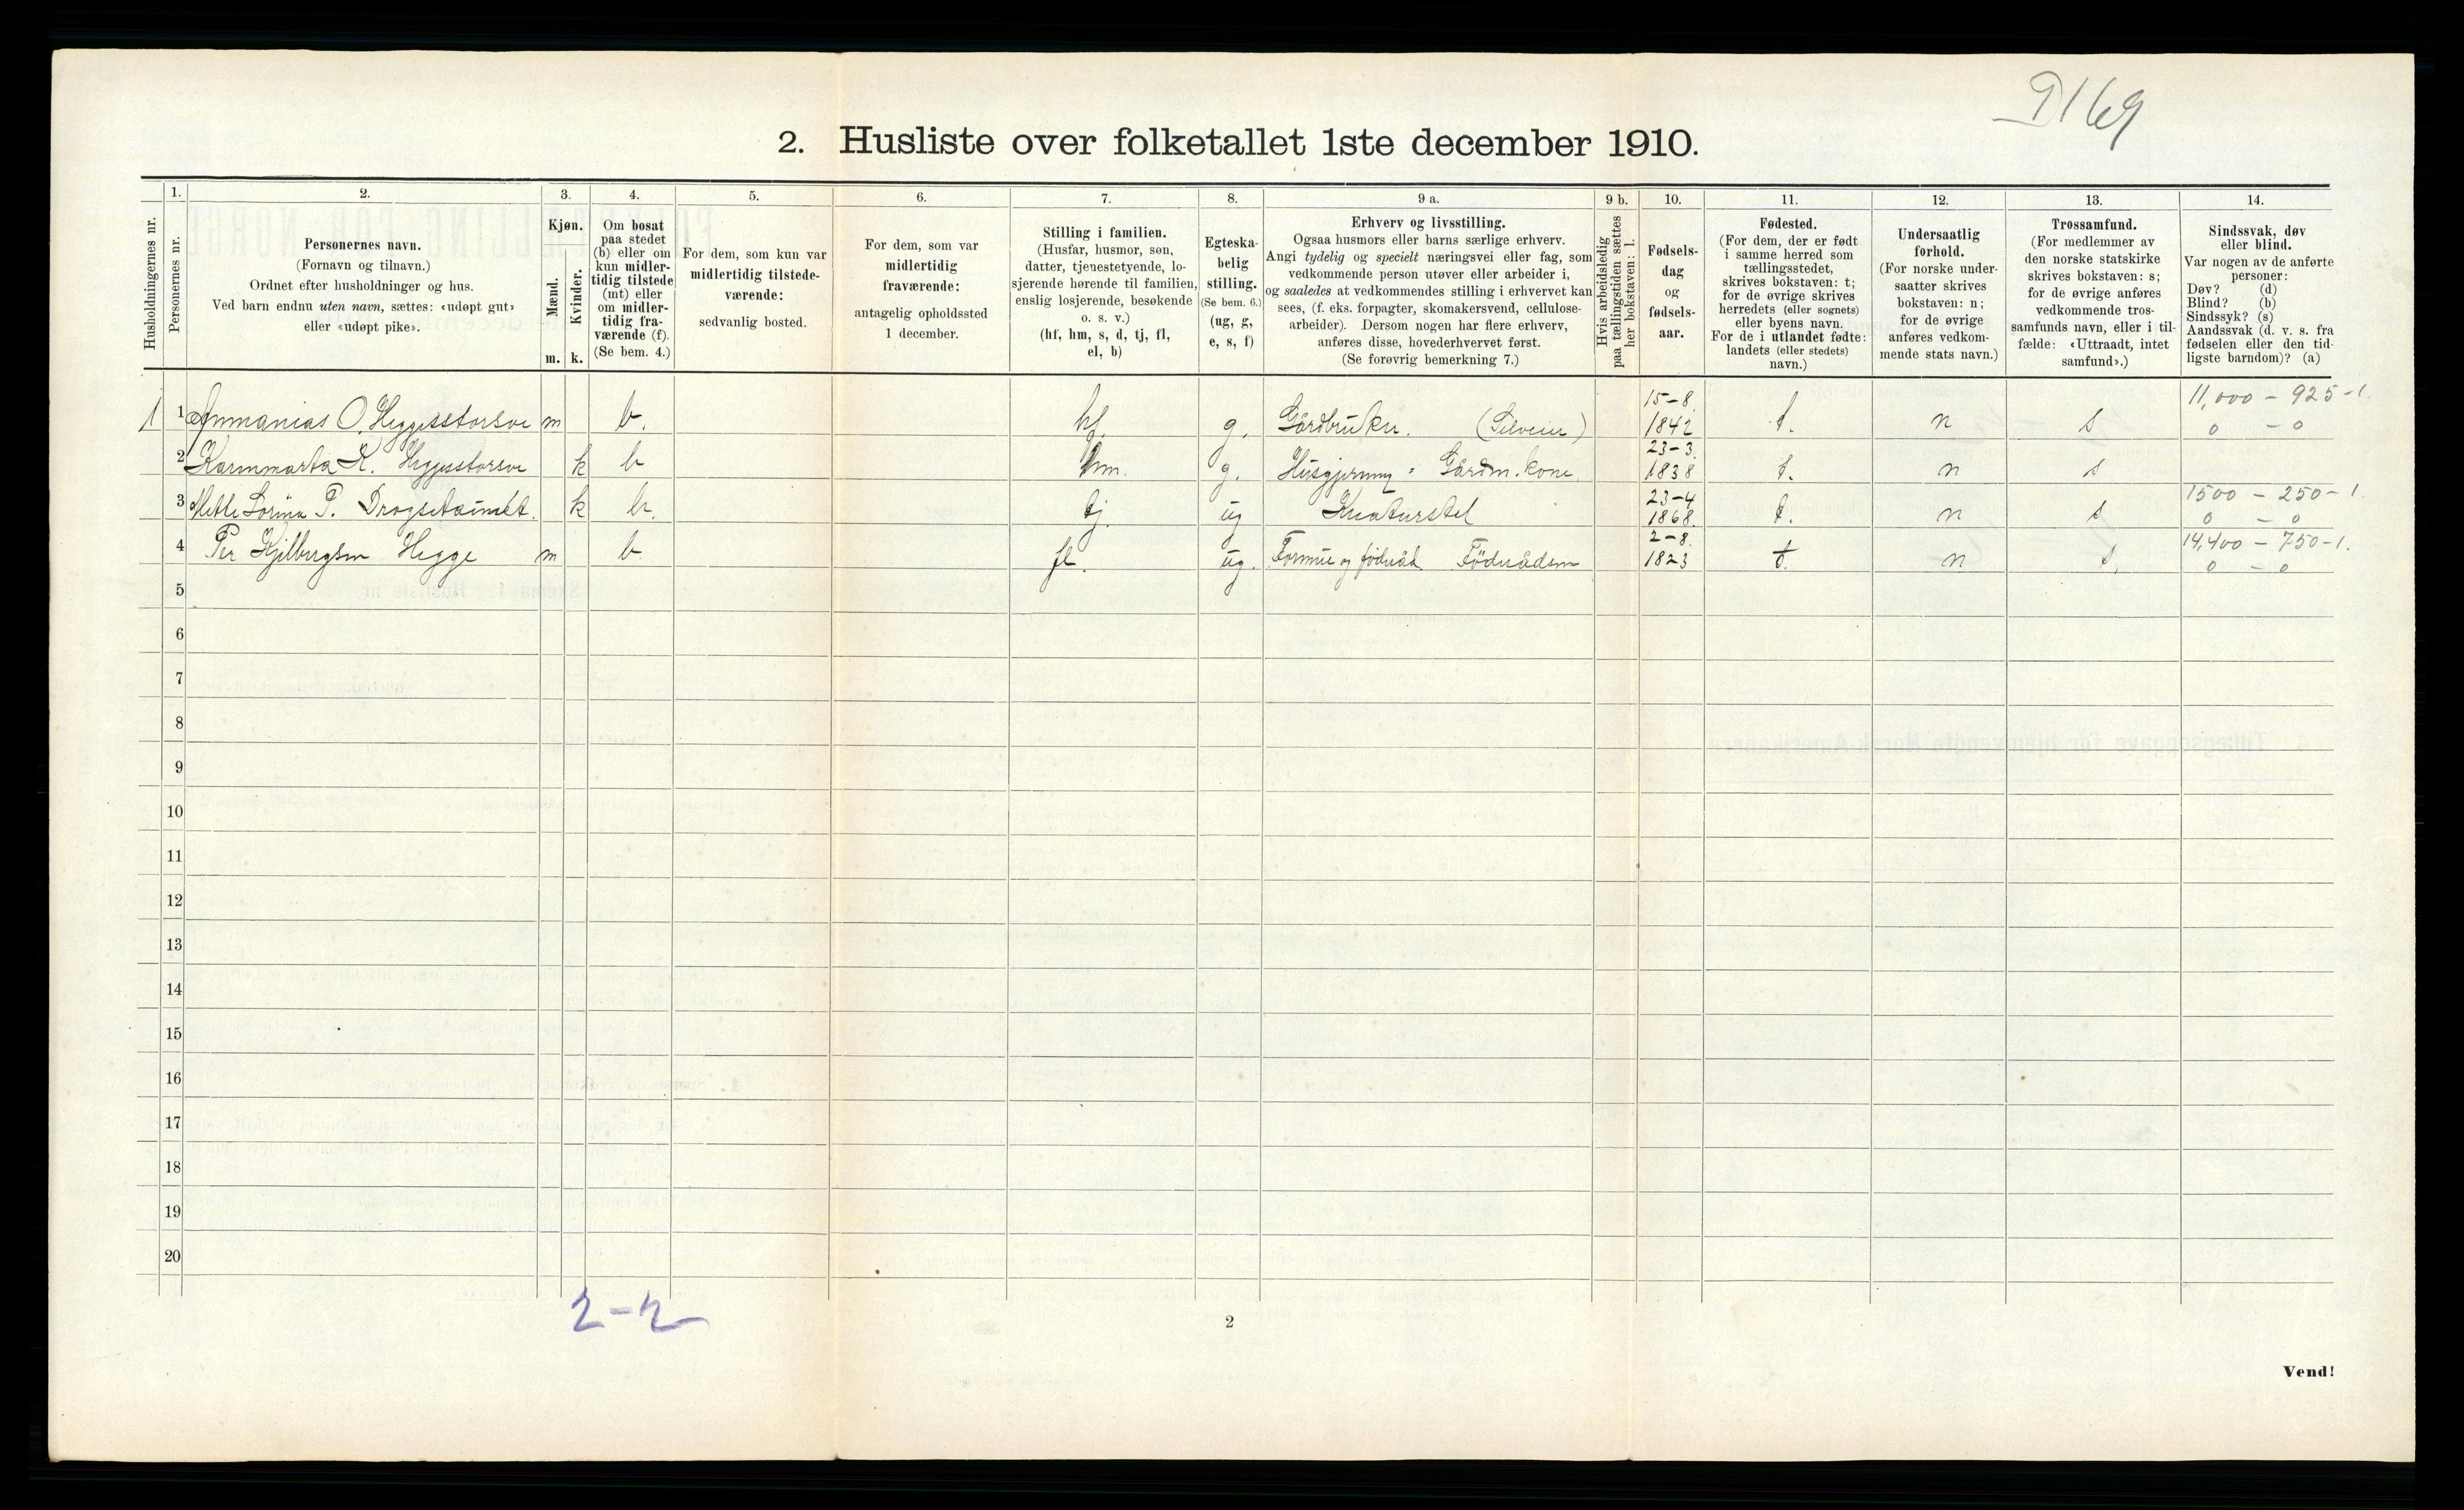 9169
2. Husliste over folketallet 1ste december 1910.
1. 2. 3. 4. 5. 6. 7. 8. 9 a. 9 b. 10. 11. 12. 13. 14.
Husholdningernes nr.
Personernes nr.
Personernes navn.
(Fornavn og tilnavn.)
Ordnet efter husholdninger og hus.
Ved barn endnu uten navn, sættes: «udøpt gut»
eller «udøpt pike».
Kjøn.
Mænd.
Kvinder.
m. k.
Om bosat
paa stedet
(b) eller om
kun midler-
tidig tilstede
(mt) eller
om midler-
tidig fra-
værende (f).
(Se bem. 4.)
For dem, som kun var
midlertidig tilstede-
værende:
sedvanlig bosted.
For dem, som var
midlertidig
fraværende:
antagelig opholdssted
1 december.
Stilling i familien.
(Husfar, husmor, søn,
datter, tjenestetyende, lo-
sjerende hørende til familien,
enslig losjerende, besøkende
o. s. v.)
(hf, hm, s, d, tj, fl,
el, b)
Egteska-
belig
stilling.
(Se bem. 6.)
(ug, g,
e, s, f)
Erhverv og livsstilling.
Ogsaa husmors eller barns særlige erhverv.
Angi tydelig og specielt næringsvei eller fag, som
vedkommende person utøver eller arbeider i,
og saaledes at vedkommendes stilling i erhvervet kan
sees, (f. eks. forpagter, skomakersvend, cellulose-
arbeider). Dersom nogen har flere erhverv,
anføres disse, hovederhvervet først.
(Se forøvrig bemerkning 7.)
Hvis arbeidsledig
paa tællingstiden sættes
her bokstaven: l.
Fødsels-
dag
og
fødsels-
aar.
Fødested.
(For dem, der er født
i samme herred som
tællingsstedet,
skrives bokstaven: t;
for de øvrige skrives
herredets (eller sognets)
eller byens navn.
For de i utlandet fødte:
landets (eller stedets)
navn.)
Undersaatlig
forhold.
(For norske under-
saatter skrives
bokstaven: n;
for de øvrige
anføres vedkom-
mende stats navn.)
Trossamfund.
(For medlemmer av
den norske statskirke
skrives bokstaven: s;
for de øvrige anføres
vedkommende tros-
samfunds navn, eller i til-
fælde: «Uttraadt, intet
samfund».)
Sindssvak, døv
eller blind.
Var nogen av de anførte
personer:
Døv? (d)
Blind? (b)
Sindssyk? (s)
Aandssvak (d. v. s. fra
fødselen eller den tid-
ligste barndom)? (a)
15-8 11,000 - 925-1.
1 1 Ammanias O. Heggesstorsve m b. hf. g. Gårdbruker. 1842 t. n s 0 - 0
23-3.
2 Karenmarta K. Heggesstorsve k b hm. g. Husgjerning = Gårdm. kone. 1838 t. n s
23-4 1500 - 250-1
3 Mette Lorina P. k b. tj. ug Kreaturstel 1868. t. n s 0 - 0
2-8. 14,400 - 750-1.
4 Per Kjelbergsen Hegge m b fl. ug. Formue og föderåd Föderådsm 1823 t. n s. 0 - 0
5
6
7
8
9
10
11
12
13
14
15
16
17
18
19
20
2-2
2
Vend!